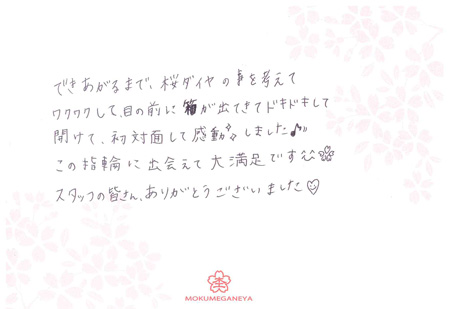 できあがるまで、桜ダイヤの事を考えて
ワクワクして、目の前に箱が出てきてドキドキして
開けて、初対面して感動しました♪
この指輪に出会えて大満足です^^
スタッフの皆さん、ありがとうございました♡
MOKUMEGANEYA